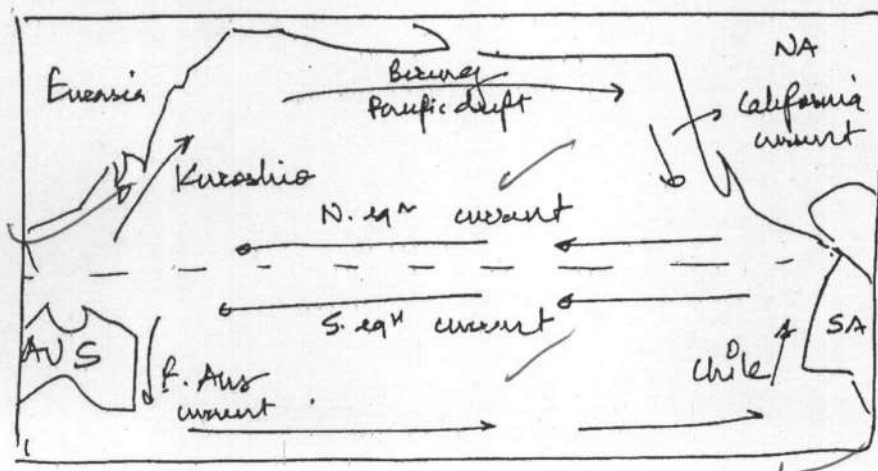 NA
Eurasia
Bering
Pacific drift
California
current
Kuroshio
N. eqn current
S. eqn current
AUS
E. Aus
current
Chile
SA